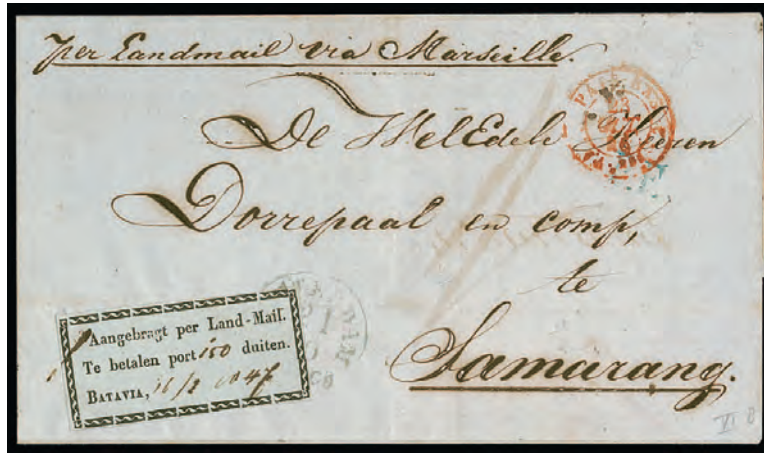 per Landmail via Marseille.
De WelEdele Heeren
Dorrepaal en comp,
te
Samarang.
Aangebragt per Land-Mail.
Te betalen port 150 duiten.
BATAVIA, 11/2 1847
VI 8